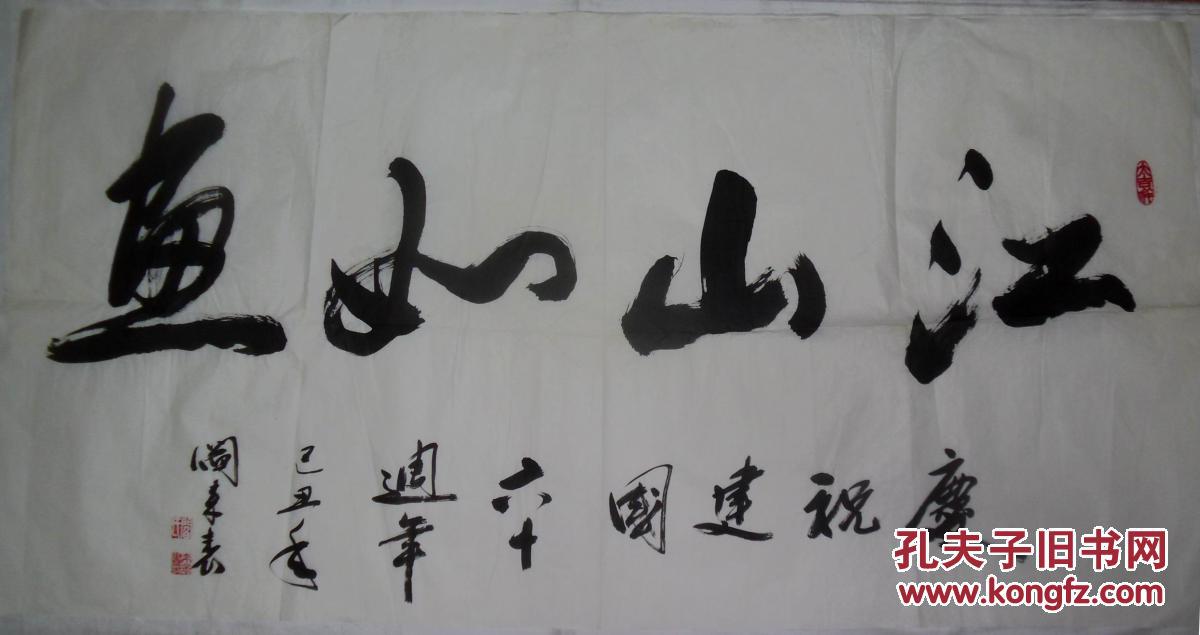 江山如画
慶祝建國六十週年
己丑年
孔夫子旧书网
www.kongfz.com